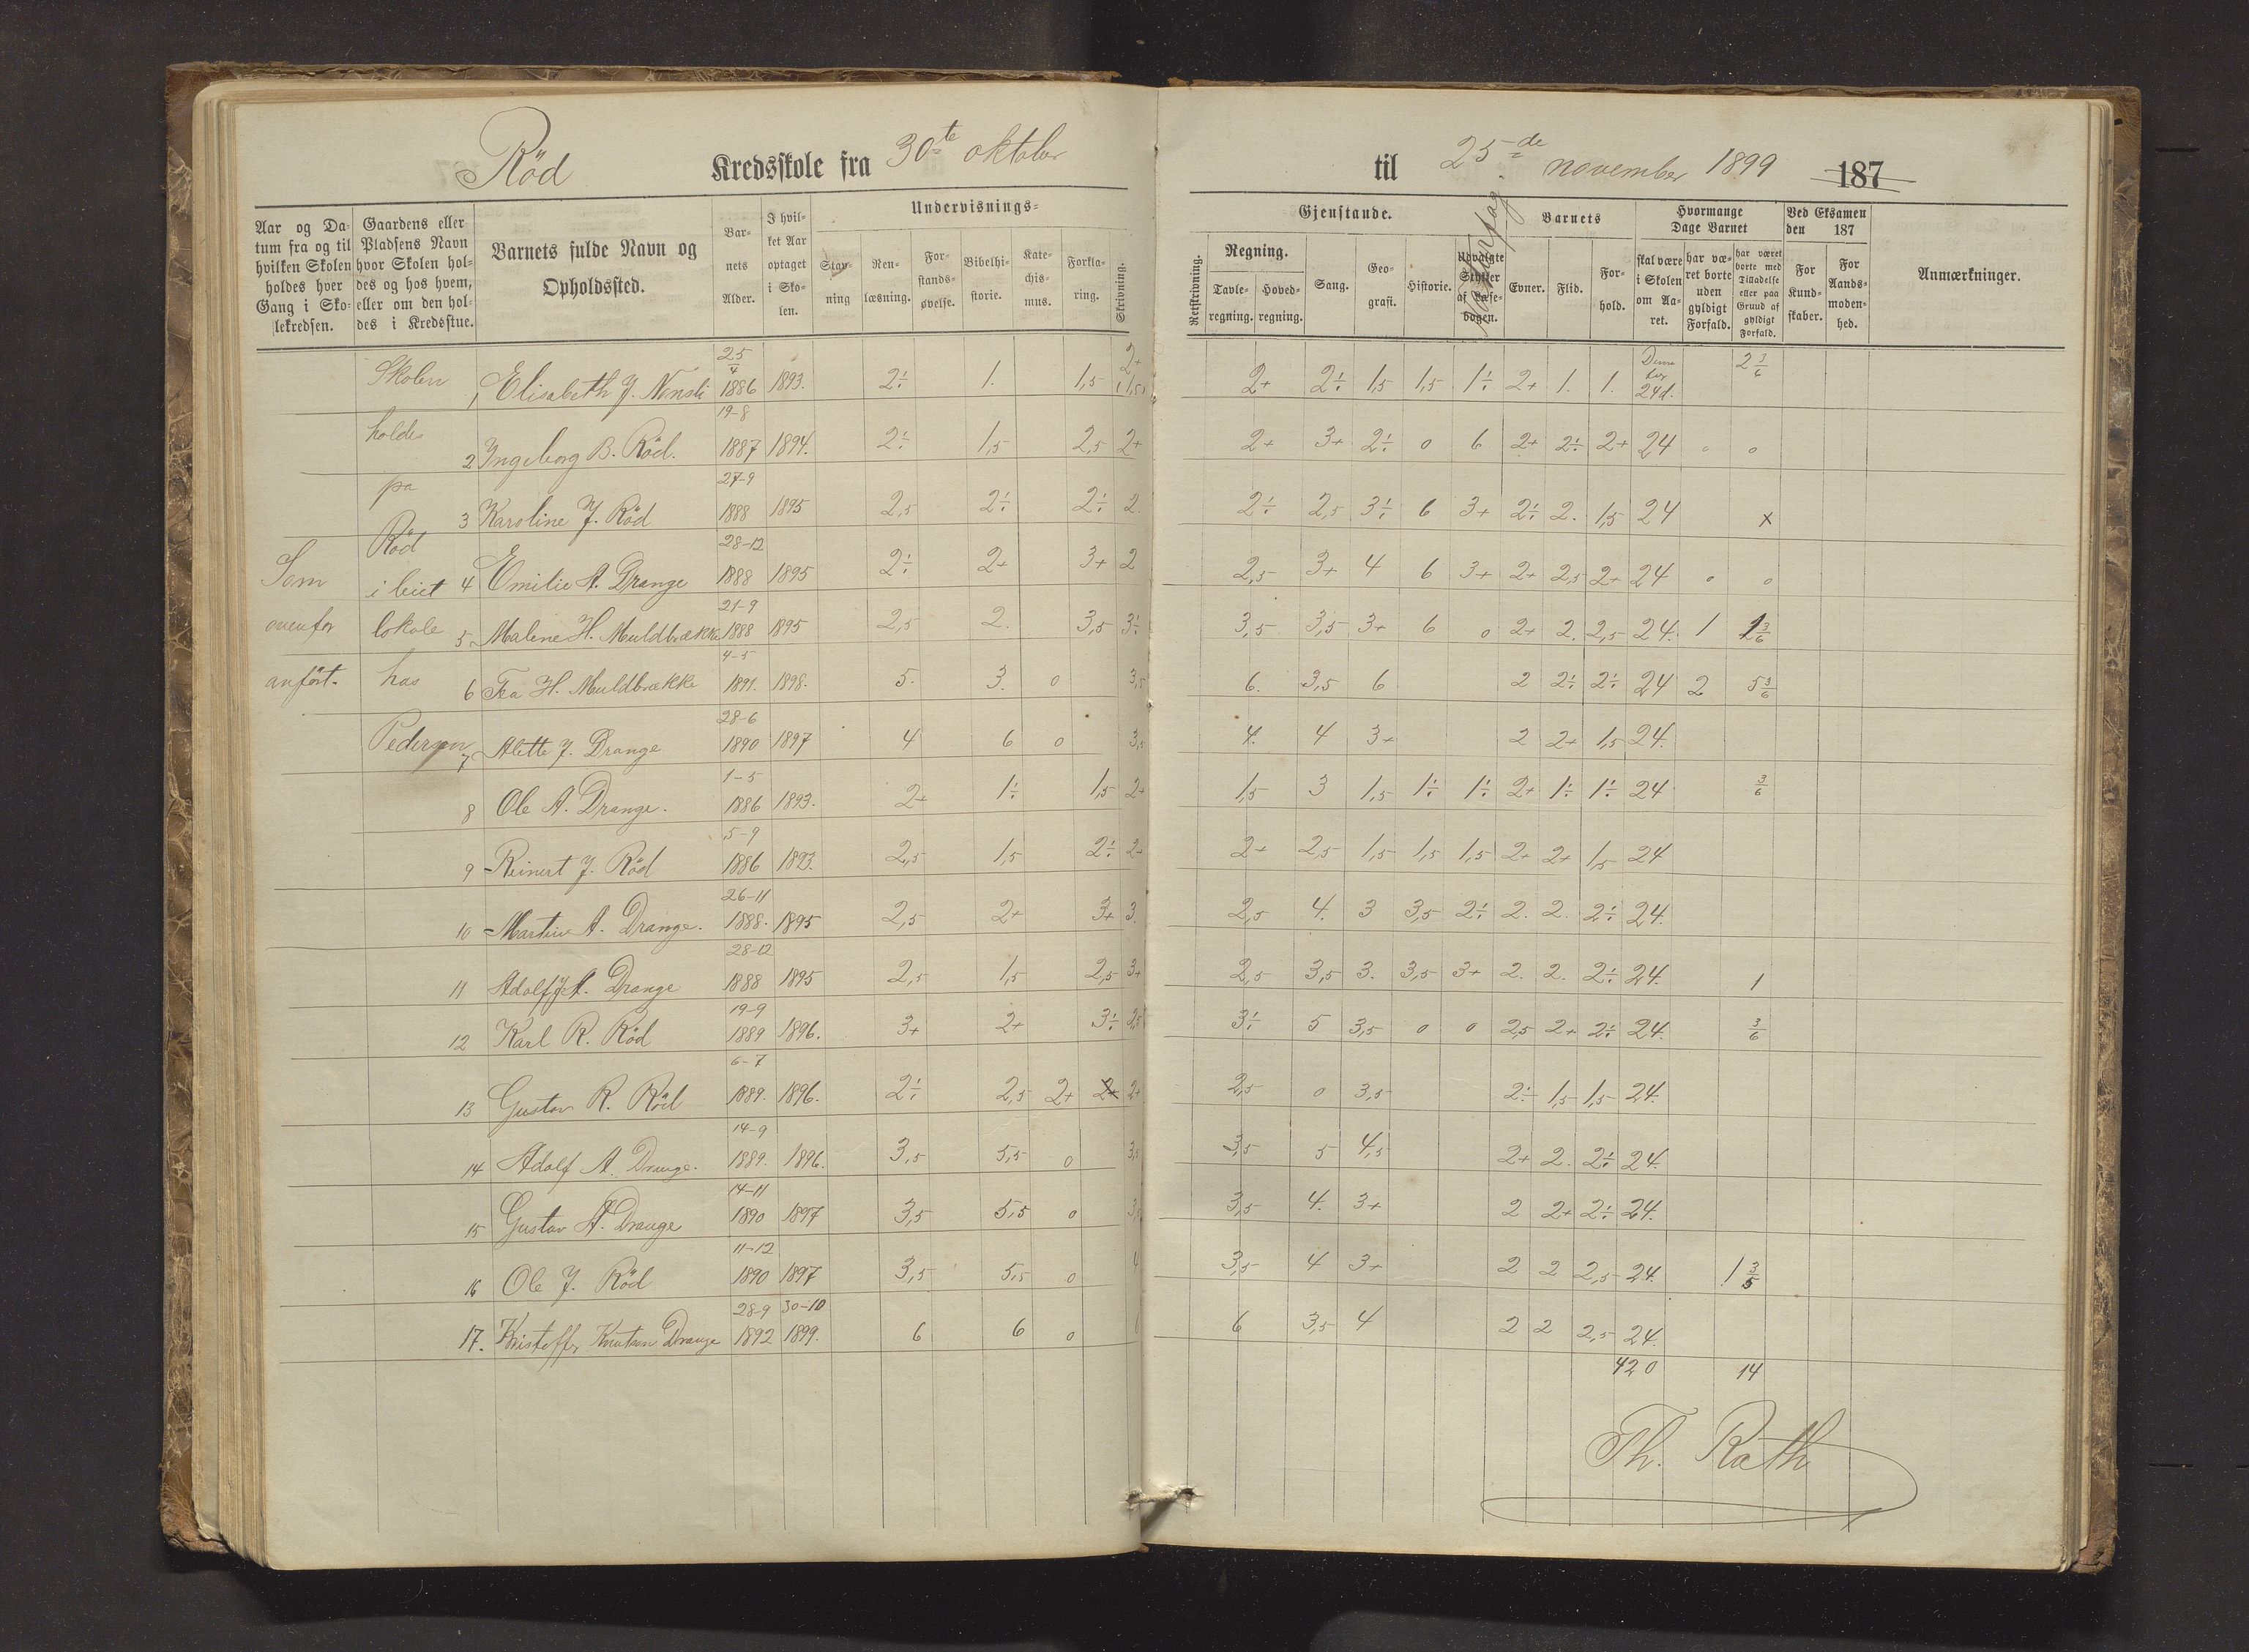 Röd Kredsskole fra 30te oktober til 25de november 1899 187
Aar og Datum fra og til hvilken Skolen holdes hver Gang i Skolekredsen.
Gaardens eller Pladsens Navn hvor Skolen holdes og hos hvem, eller om den holdes i Kredsstue.
Barnets fulde Navn og Opholdssted.
Barnets Alder.
I hvilket Aar optaget i Skolen.
Undervisnings-
Stavning
Renlæsning.
Forstandsøvelse.
Bibelhistorie.
Katechismus.
Forklaring.
Skrivning.
Gjenstande.
Retskrivning.
Regning.
Tavleregning.
Hovedregning.
Sang.
Geografi.
Historie.
Udvalgte Stykker af Læsebogen.
Barnets
Evner.
Flid.
Forhold.
Hvormange Dage Barnet
skal være i Skolen om Aaret.
har været borte uden gyldigt Forfald.
har været borte med Tilladelse eller paa Grund af gyldigt Forfald.
Ved Eksamen den 187
For Kundskaber.
For Aandsmodenhed.
Anmærkninger.
Skolen holdes på Röd i leiet lokale hos Pedersen
Som ovenfor anfört.
1 Elisabeth J. 25/4 1886 1893. 2÷ 1. 1,5 2+ 2+ 2÷ 1,5 1,5 1÷ 2+ 1. 1. 24d. 2 3/6
2 Ingeborg B. Röd. 19-8 1887 1894. 2÷ 1,5 2,5 2+ 2+ 3+ 2÷ 0 6 2+ 2÷ 2+ 24 0 0
3 Karoline J. Röd 27-9 1888 1895 2,5 2÷ 2÷ 2. 2÷ 2,5 3÷ 6 3+ 2÷ 2. 1,5 24 x
4 Emilie A. Drange 28-12 1888 1895 2÷ 2+ 3+ 2 2,5 3+ 4 6 3+ 2+ 2,5 2+ 24 0 0
5 Malene H. Muldbrække 21-9 1888 1895 2,5 2. 3,5 3÷ 3,5 3,5 3+ 6 0 2+ 2. 2,5 24. 1 1 3/6
6 Tea H. Muldbrække 4-5 1891. 1898. 5. 3. 0 3,5 6. 3,5 6 2 2÷ 2÷ 24 2 5 3/6
7 Alette J. Drange 28-6 1890 1897 4 6 0 3,5 4. 4 3+ 2 2+ 1,5 24.
8 Ole A. Drange. 1-5 1886 1893. 2+ 1÷ 1,5 2+ 1,5 3 1,5 1÷ 1÷ 2+ 1÷ 1÷ 24 3/6
9 Reinert J. Röd 5-9 1886 1893. 2,5 1,5 2÷ 2+ 2+ 2,5 1,5 1,5 1,5 2+ 2+ 1,5 24
10 Martin A. Drange. 26-11 1888. 1895 2,5 2+ 3+ 3. 2,5 4. 3 3,5 2÷ 2. 2. 2÷ 24.
11 Adolf A. Drange 28-12 1888 1895 2,5 1,5 2,5 3+ 2,5 3,5 3. 3,5 3+ 2. 2. 2÷ 24. 1
12 Karl R. Röd 19-9 1889 1896. 3+ 2+ 3÷ 2,5 3÷ 5 3,5 0 0 2,5 2+ 2÷ 24. 3/6
13 Gustav R. Röd 6-7 1889. 1896. 2÷ 2,5 2+ 2+ 2+ 2,5 0 3,5 2÷ 1,5 1,5 24.
14 Adolf A. Drange. 14-9 1889. 1896. 3,5 5,5 0 3,5 3,5 5 4,5 2+ 2. 2÷ 24.
15 Gustav A. Drange 14-11 1890 1897 3,5 5,5 0 3,5 4. 3+ 2 2+ 2÷ 24.
16 Ole J. Röd 11-12 1890 1897 3,5 5,5 0 4 3,5 4 3+ 2 2 2,5 24. 1 3/5
17. Kristoffer Knutsen Drange 28-9 1892 30-10 1899. 6 6 0 6 6 3,5 4 2 2 2,5 24.
420 14
Th. Rath